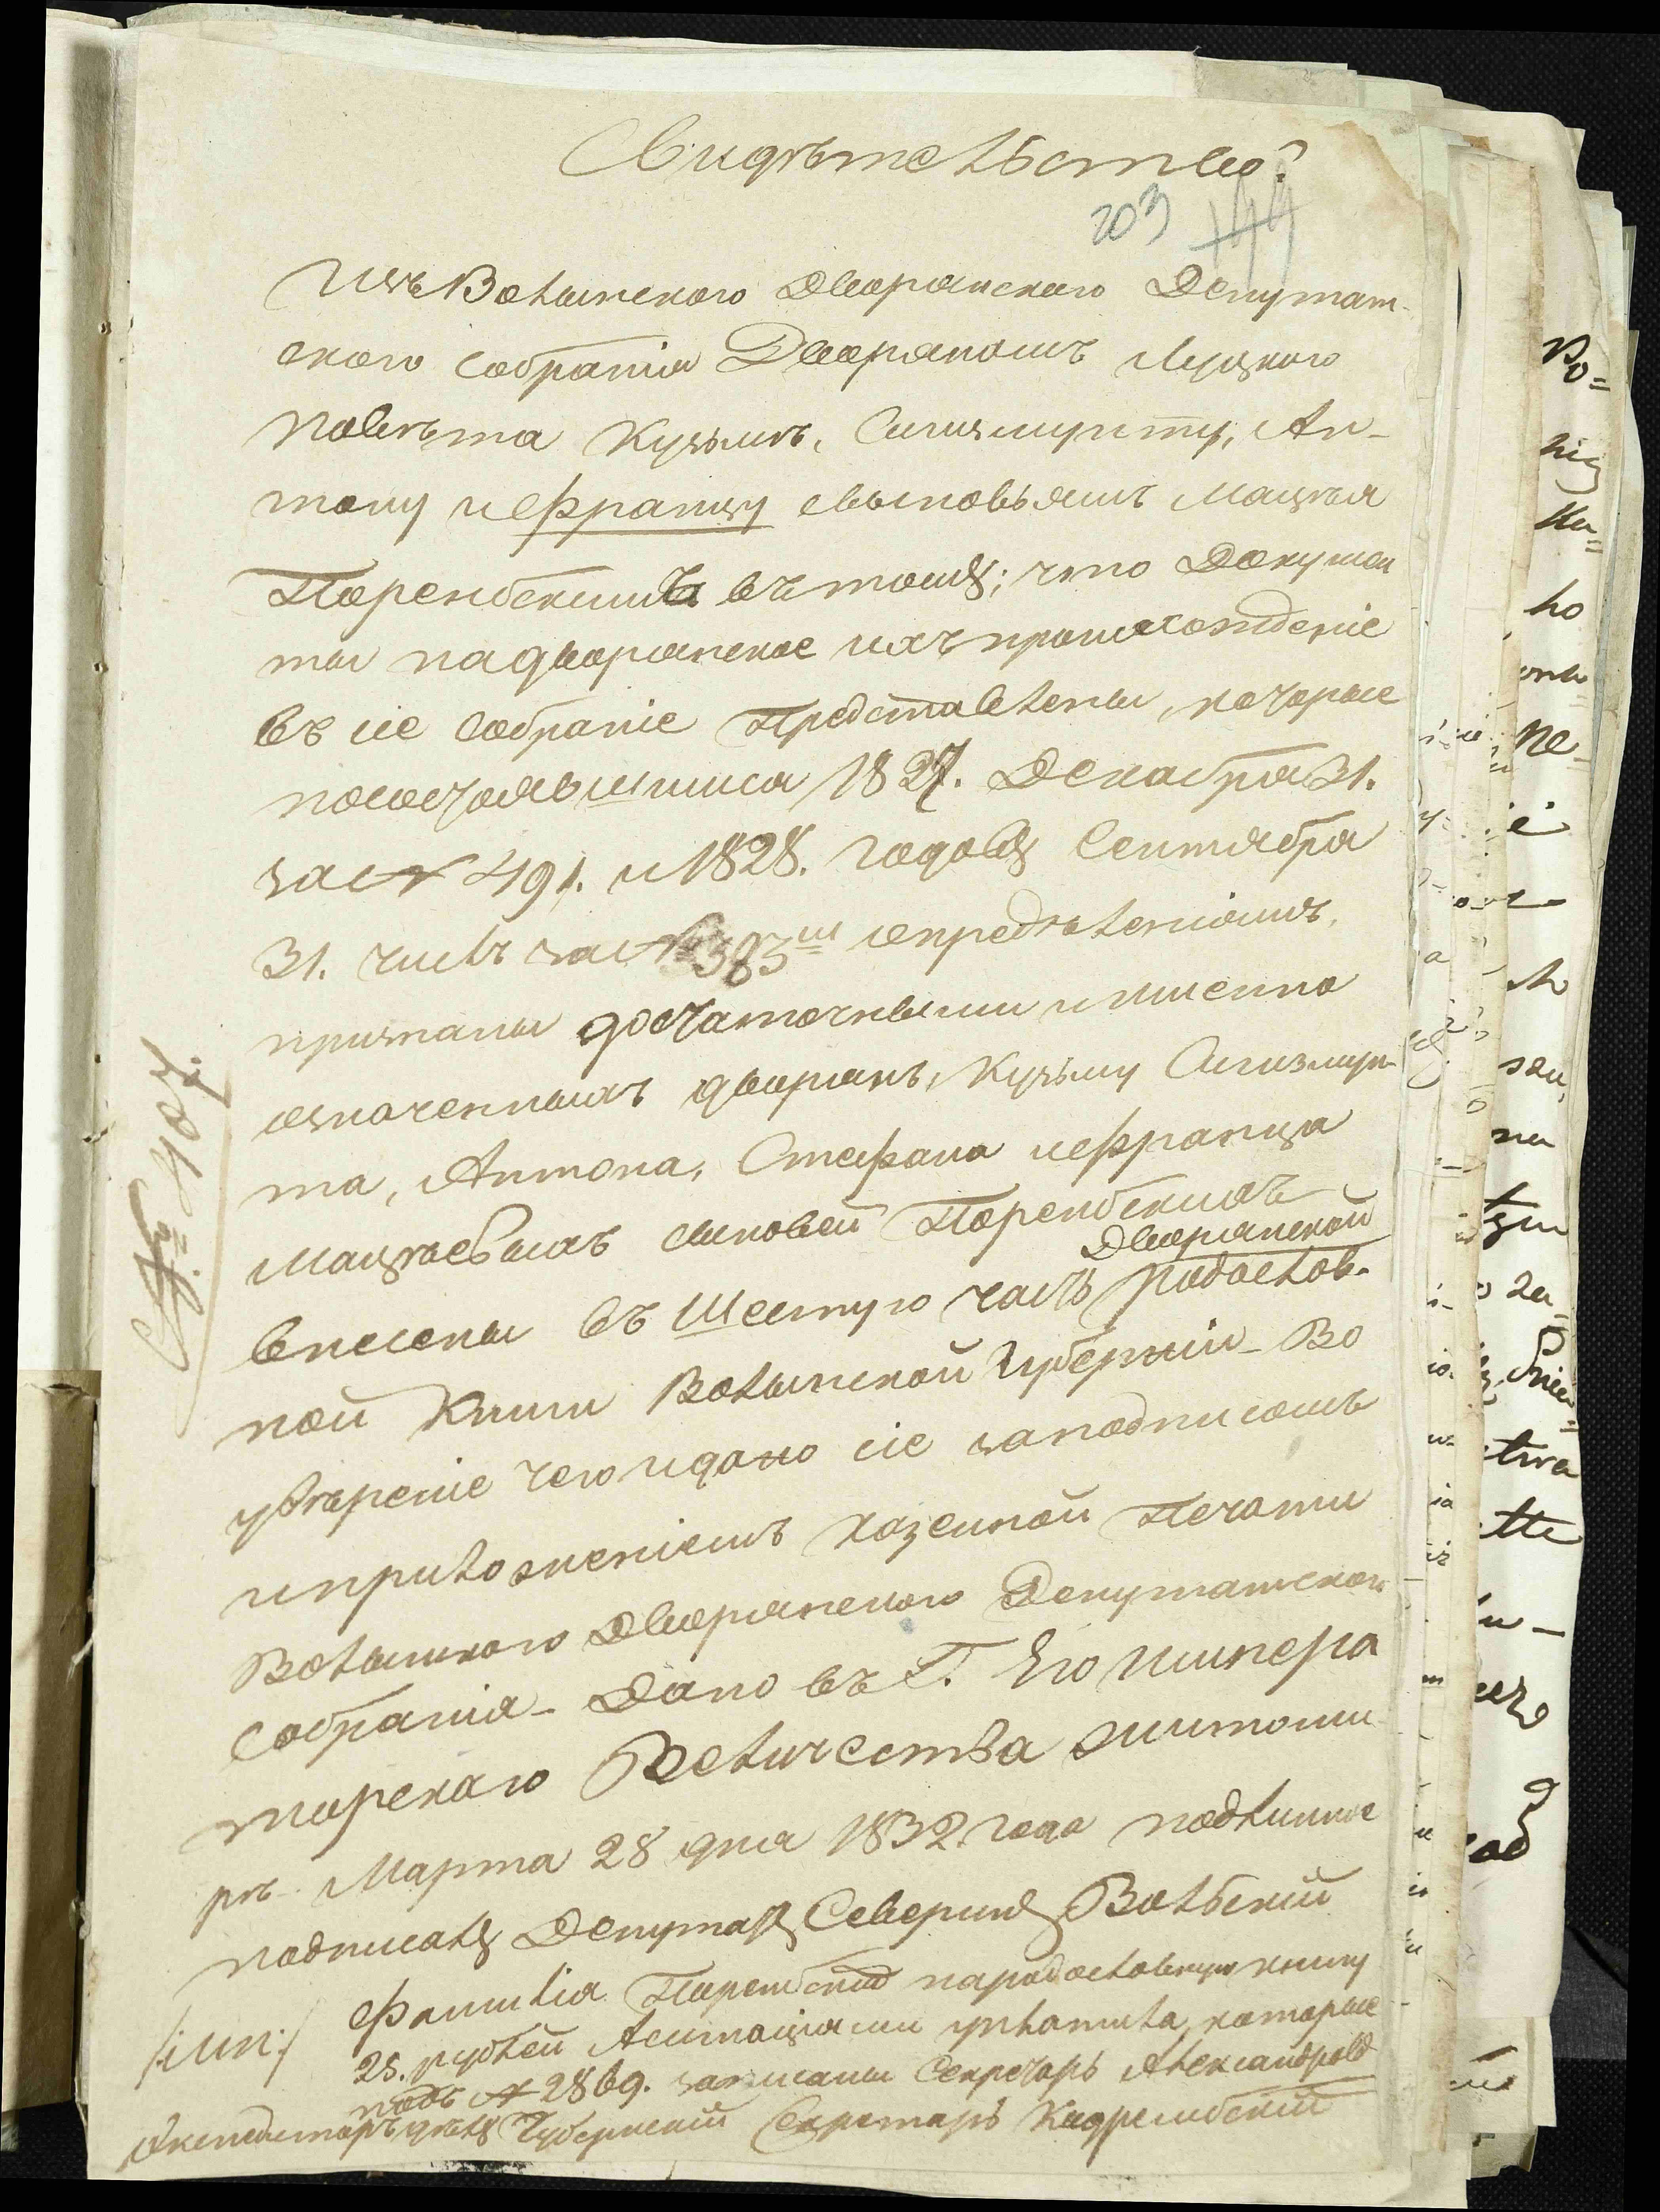 Свидѣтельство
203 144
Изъ Волынского Дворянского Депутат-
ского Собранія Дворяномъ Луцкого
Повѣта Кузьмѣ, Сигизмунту, Ан-
тону и Францу сыновьямъ Мацѣя
Порембскимъ въ томъ; что Докумен
ты на дворянское ихъ произхожденіе
въ сіе Собраніе Представлены, которые
посостоявшимся 1827. Декабря 31.
за № 491. и 1828. годовъ Сентября
31. числъ за № 383ш опредѣленіямъ,
признаны достаточными и имѣнно
означенныхъ дворянъ, Кузьму Сигизмун-
та, Антона, Стефана и Франца
Мацѣевыхъ сыновей Порембскихъ
Дворянской
внесены въ Шестую часть родослов-
ной Книги Волынской Губерніи - Во
увѣреніе чего и дано сіе за подписомъ
и приложеніемъ казенной Печати
Волынского Дворянского Депутатского
Собранія - Дано въ Г. Его Импера
торскаго Величества Житоми
рѣ. Марта 28 дня 1832 года подлинное
подписалъ Депутатъ Северинъ Вольский
/:мп:/ Фамилія Порембскихъ на родословную книгу
25. рублей Асигнаціями уплатила, которые
подъ № 2869. записаны Секретарь Александровъ
Экспедиторъ дѣлъ Губернскій Секретарь
№ 407.